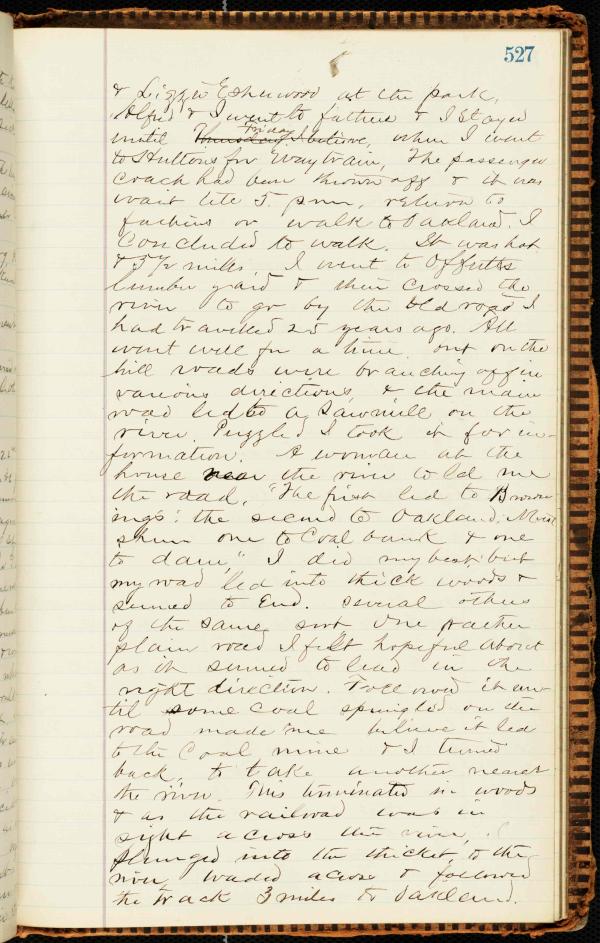 527
& Lizzie Esherwood at the park.
Alfred & I went to fathers & I stayed
until Thursday Friday I believe, when I went
to Huttons for Evay train, The passenger
coach had been thrown off & it was
wait till 5. p.m., return to
fathers or walk to Oakland. I
concluded to walk. It was hot
& 5 1/2 miles, I went to Offutts
lumber yard & then crossed the
river to go by the old road I
had traveled 25 years ago. All
went well for a time but on the
hill roads were branching off in
various directions, & the main
road led to a Sawmill on the
river. Puzzled I took it for in-
formation. A woman at the
house near the river told me
the road, "The first led to Brown-
ings: the second to Oakland. Must
shun one to Coal bank & one
to dam," I did my best but
my road led into thick woods &
seemed to End. several others
of the same sort One rather
plain road I felt hopeful about
as it seemed to lead in the
right direction. Followed it un-
til some coal sprinkled on the
road made me believe it led
to the Coal mine & I turned
back, to take another nearer
the river. This terminated in woods
& as the railroad was in
sight across the river, I
plunged into the thicket, to the
river, waded across & followed
the track 3 miles to Oakland.